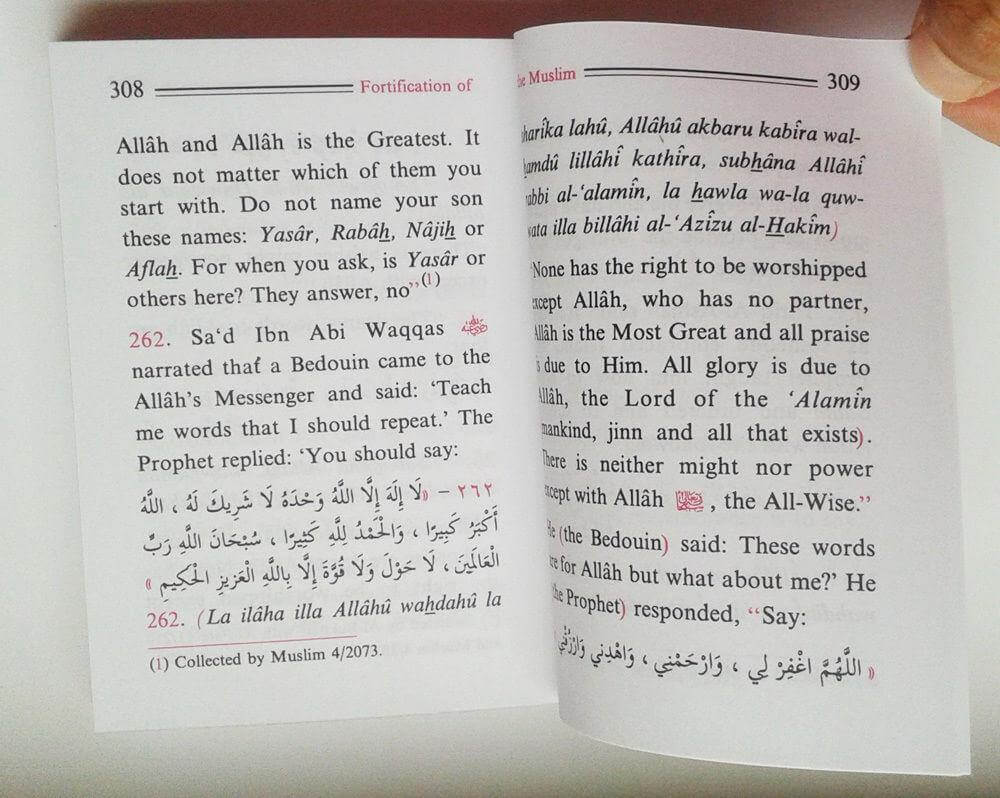 308 Fortification of
Allâh and Allâh is the Greatest. It
does not matter which of them you
start with. Do not name your son
these names: Yasâr, Rabâh, Nâjih or
Aflah. For when you ask, is Yasâr or
others here? They answer, no”(1)
262. Sa‘d Ibn Abi Waqqas رضي الله عنه
narrated that a Bedouin came to the
Allâh’s Messenger and said: ‘Teach
me words that I should repeat.’ The
Prophet replied: ‘You should say:
٢٦٢ – «لَا إِلَهَ إِلَّا اللَّهُ وَحْدَهُ لَا شَرِيكَ لَهُ ، اللَّهُ
أَكْبَرُ كَبِيرًا ، وَالْحَمْدُ لِلَّهِ كَثِيرًا ، سُبْحَانَ اللَّهِ رَبِّ
الْعَالَمِينَ، لَا حَوْلَ وَلَا قُوَّةَ إِلَّا بِاللَّهِ الْعَزِيزِ الْحَكِيمِ »
262. (La ilâha illa Allâhû wahdahû la
(1) Collected by Muslim 4/2073.
the Muslim 309
sharîka lahû, Allâhû akbaru kabîra wal-
hamdû lillâhî kathîra, subhâna Allâhî
rabbi al-‘alamîn, la hawla wa-la quw-
wata illa billâhi al-‘Azîzu al-Hakîm)
‘None has the right to be worshipped
except Allâh, who has no partner,
Allâh is the Most Great and all praise
is due to Him. All glory is due to
Allâh, the Lord of the ‘Alamîn
mankind, jinn and all that exists).
There is neither might nor power
except with Allâh , the All-Wise.”
He (the Bedouin) said: These words
are for Allâh but what about me?’ He
the Prophet) responded, “Say:
« اللَّهُمَّ اغْفِرْ لِي ، وَارْحَمْنِي ، وَاهْدِنِي وَارْزُقْنِي